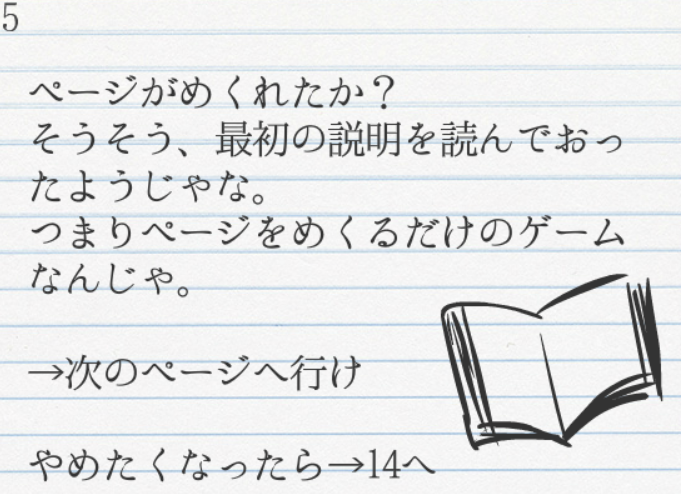 5
ページがめくれたか？
そうそう、最初の説明を読んでおっ
たようじゃな。
つまりページをめくるだけのゲーム
なんじゃ。
→次のページへ行け
やめたくなったら→14へ